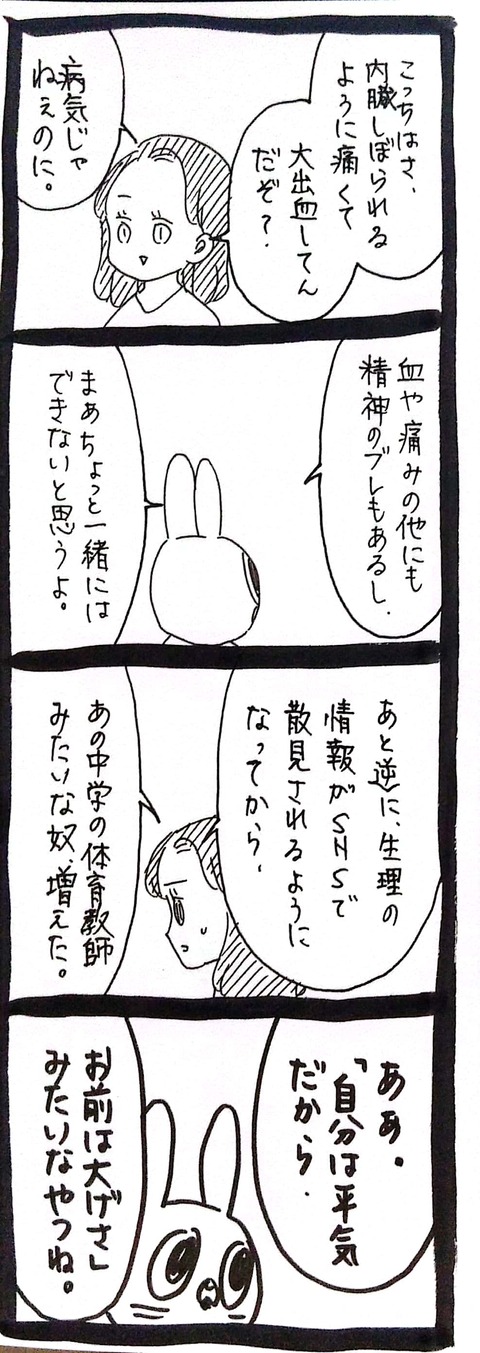 こっちはさ、
内臓しぼられる
ように痛くて
大出血してん
だぞ？
病気じゃ
ねぇのに。
血や痛みの他にも
精神のブレもあるし、
まあちょっと一緒には
できないと思うよ。
あと逆に、生理の
情報がSNSで
散見されるように
なってから、
あの中学の体育教師
みたいな奴、増えた。
ああ。
「自分は平気
だから、
お前は大げさ」
みたいなやつね。